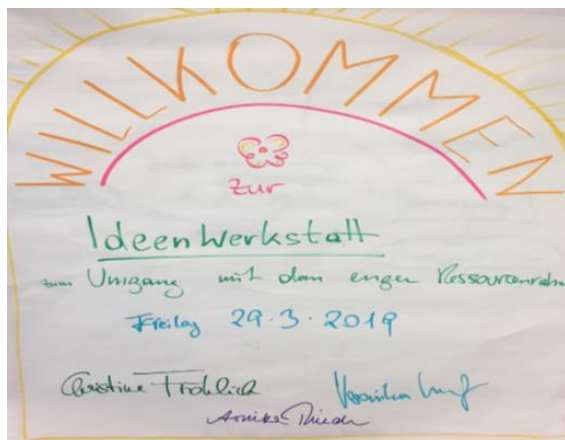 WILLKOMMEN
zur
IdeenWerkstatt
zum Umgang mit dem engen Ressourcenrahm
Freitag 29.3.2019
Christine Fröhlich Veronika
Annika